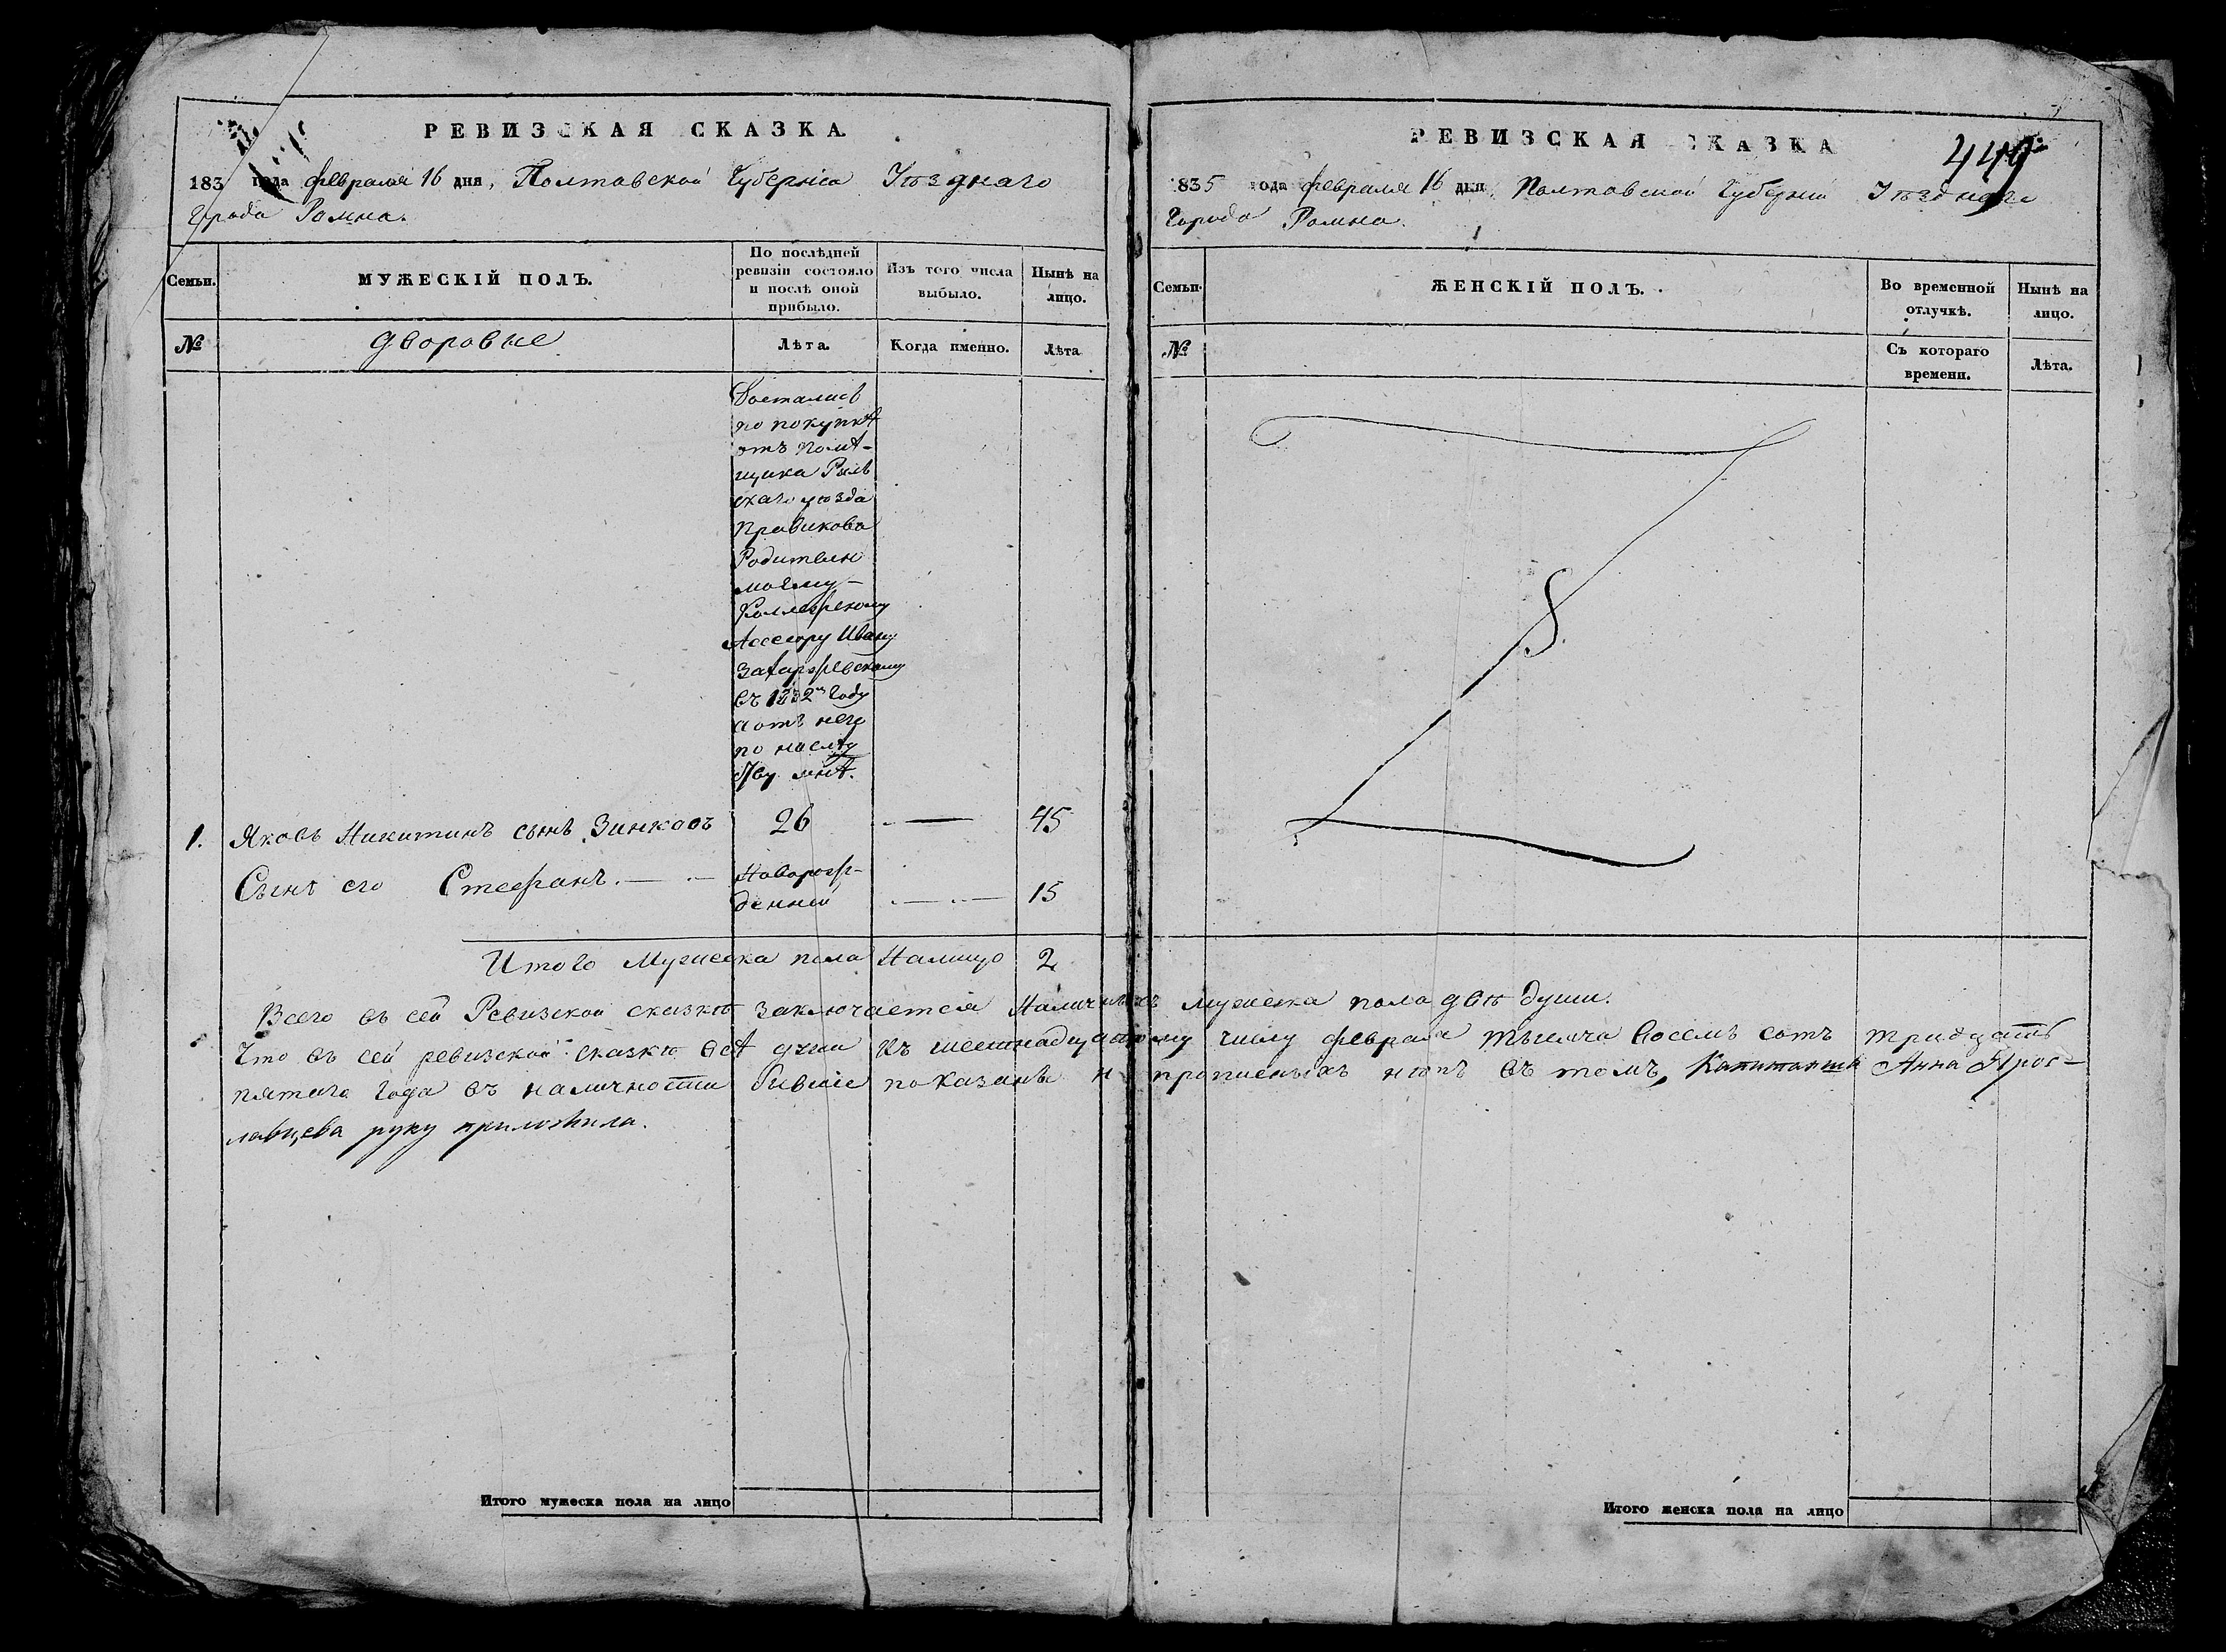 РЕВИЗСКАЯ СКАЗКА.
183 года февраля 16 дня, Полтавской Губерніи Уѣзднаго
Города Ромна.
Семьи.
МУЖЕСКІЙ ПОЛЪ.
По послѣдней
ревизіи состояло
и послѣ оной
прибыло.
Изъ того числа
выбыло.
Нынѣ на
лицо.
№
дворовые
Лѣта.
Когда именно.
Лѣта
Достались
по покупкѣ
отъ помѣ-
щика Рыль
скаго уѣзда
Правикова
Родителю
моему
Коллежскому
Асесору Ивану
въ 1832мъ году
а отъ него
по наслѣд
ству мнѣ.
1. Яковъ Никитинъ сынъ Зинковъ 26 — 45
Сынъ его Стефанъ. — — Новорож-
денный — — 15
Итого Мужеска пола Налицо 2
РЕВИЗСКАЯ СКАЗКА
449
1835 года февраля 16 дня Полтавской Губерніи Уѣзднаго
Города Ромна.
Семьи.
ЖЕНСКІЙ ПОЛЪ.
Во временной
отлучкѣ.
Нынѣ на
лицо.
№
Съ котораго
времени.
Лѣта.
Всего въ сей Ревизской сказкѣ заключается Наличныхъ мужеска пола двѣ души.
Что въ сей ревизской сказкѣ всѣ души къ шестнадцатому числу февраля тысяча восемь сотъ тридцать
пятаго года въ наличности бывшіе показаны и прописныхъ нѣтъ въ томъ, Капитанша Анна Ярос-
лавцева руку приложила.
Итого мужеска пола на лицо
Итого женска пола на лицо